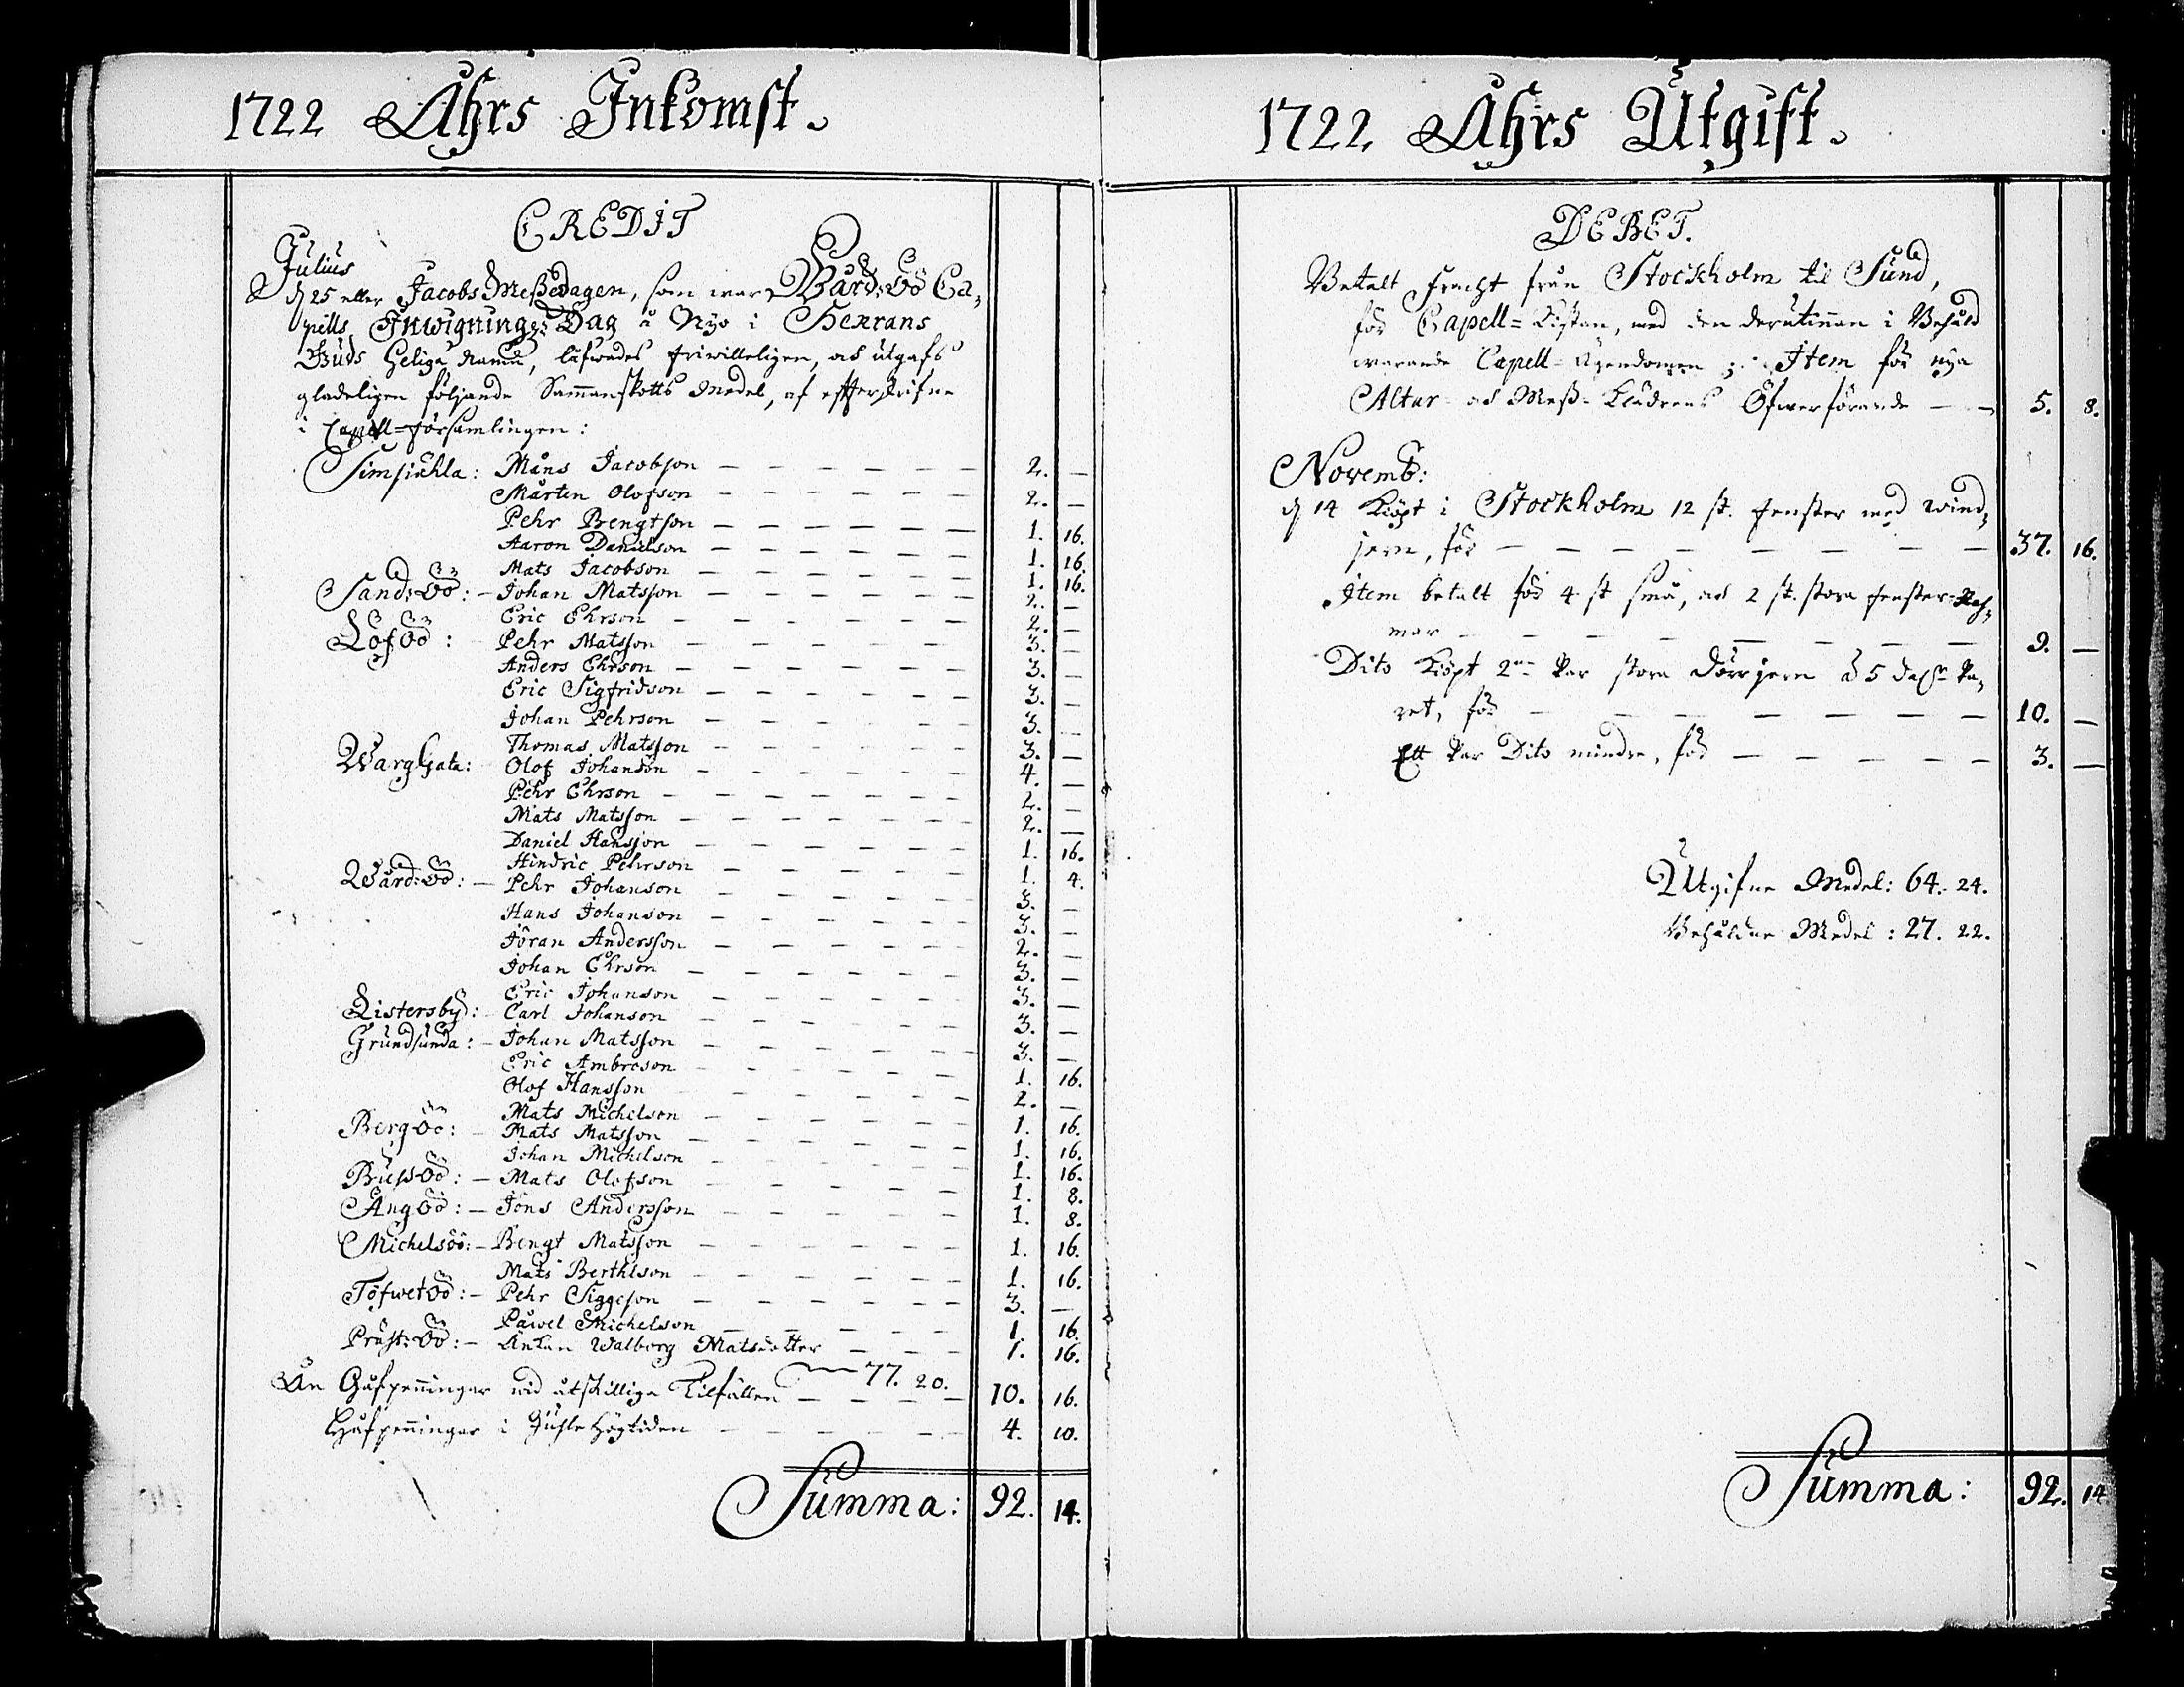 1722 Åhrs Inkomst.
CREDIT
Julius
d 25 eller Jacobs Messedagen, som war Wård-Öö Ca-
pells Inwignings Dag å Nyo i Herrans
Guds Heliga namn, låfwades friwilleligen, och utgafs
gladeligen följande Sammanskotts Medel, af effterskrifne
i Capell-församlingen:
Simskiähla: Måns Jacobson — 2. —
Mårten Olofson — 2. —
Pehr Bengtson — 1. 16.
Aaron Danielson — 1. 16.
Mats Jacobson — 1. 16.
Sand-Öö: – Johan Matsson — 2. —
Eric Ehrson — 2. —
Löföö: Pehr Matsson — 3. —
Anders Ehrson — 3. —
Eric Sigfridson — 3. —
Johan Pehrson — 3. —
Thomas Matsson — 3. —
Wargata: Olof Johanson — 4. —
Pehr Ehrson — 2. —
Mats Matsson — 2. —
Daniel Hansson — 1. 16.
Hindric Pehrson — 1. 4.
Wård-Öö: – Pehr Johanson — 3. —
Hans Johanson — 3. —
Jöran Andersson — 2. —
Johan Ehrson — 3. —
Eric Johanson — 3. —
Listersby: Carl Johanson — 3. —
Grundsunda: – Johan Matsson — 3. —
Eric Ambroson — 1. 16.
Olof Hansson — 2. —
Mats Michelson — 1. 16.
Bergöö: – Mats Matsson — 1. 16.
Johan Michelson — 1. 16.
Brussöö: – Mats Olofson — 1. 8.
Ängöö: – Jöns Andersson — 1. 8.
Michelsöö: – Bengt Matsson — 1. 16.
Mats Berthlson — 1. 16.
Töfwetöö: – Pehr Siggeson — 3. —
Påwel Michelson — 1. 16.
Präst-Öö: – Änkan Walborg Matsdotter — 1. 16.
77. 20.
Än Gåfpenningar wid åtskillige Tilfällen — 10. 16.
Håfpenningar i Juhle Högtiden — 4. 10.
Summa: 92. 14.
1722 Åhrs Utgift.
DEBET.
Betalt Fracht från Stockholm til Sund,
för Capell-Kistan, med den derutinnan i Behåld
warande Capell-Ägendomen; Item för nya
Altar- och Mess-Klädrens Öfwerförande — 5. 8.
Novemb:
d 14 Kiöpt i Stockholm 12 st. fenster med wind-
jern, för — 37. 16.
Item betalt för 4 st små, och 2 st. stora fenster-Rah-
mar — 9. —
Dito Kiöpt 2 Par stora dörrjern à 5 dalr Pa-
ret, för — 10. —
Ett Par Dito mindre, för — 3. —
Utgifne Medel: 64. 24.
Behåldne Medel: 27. 22.
Summa: 92. 14